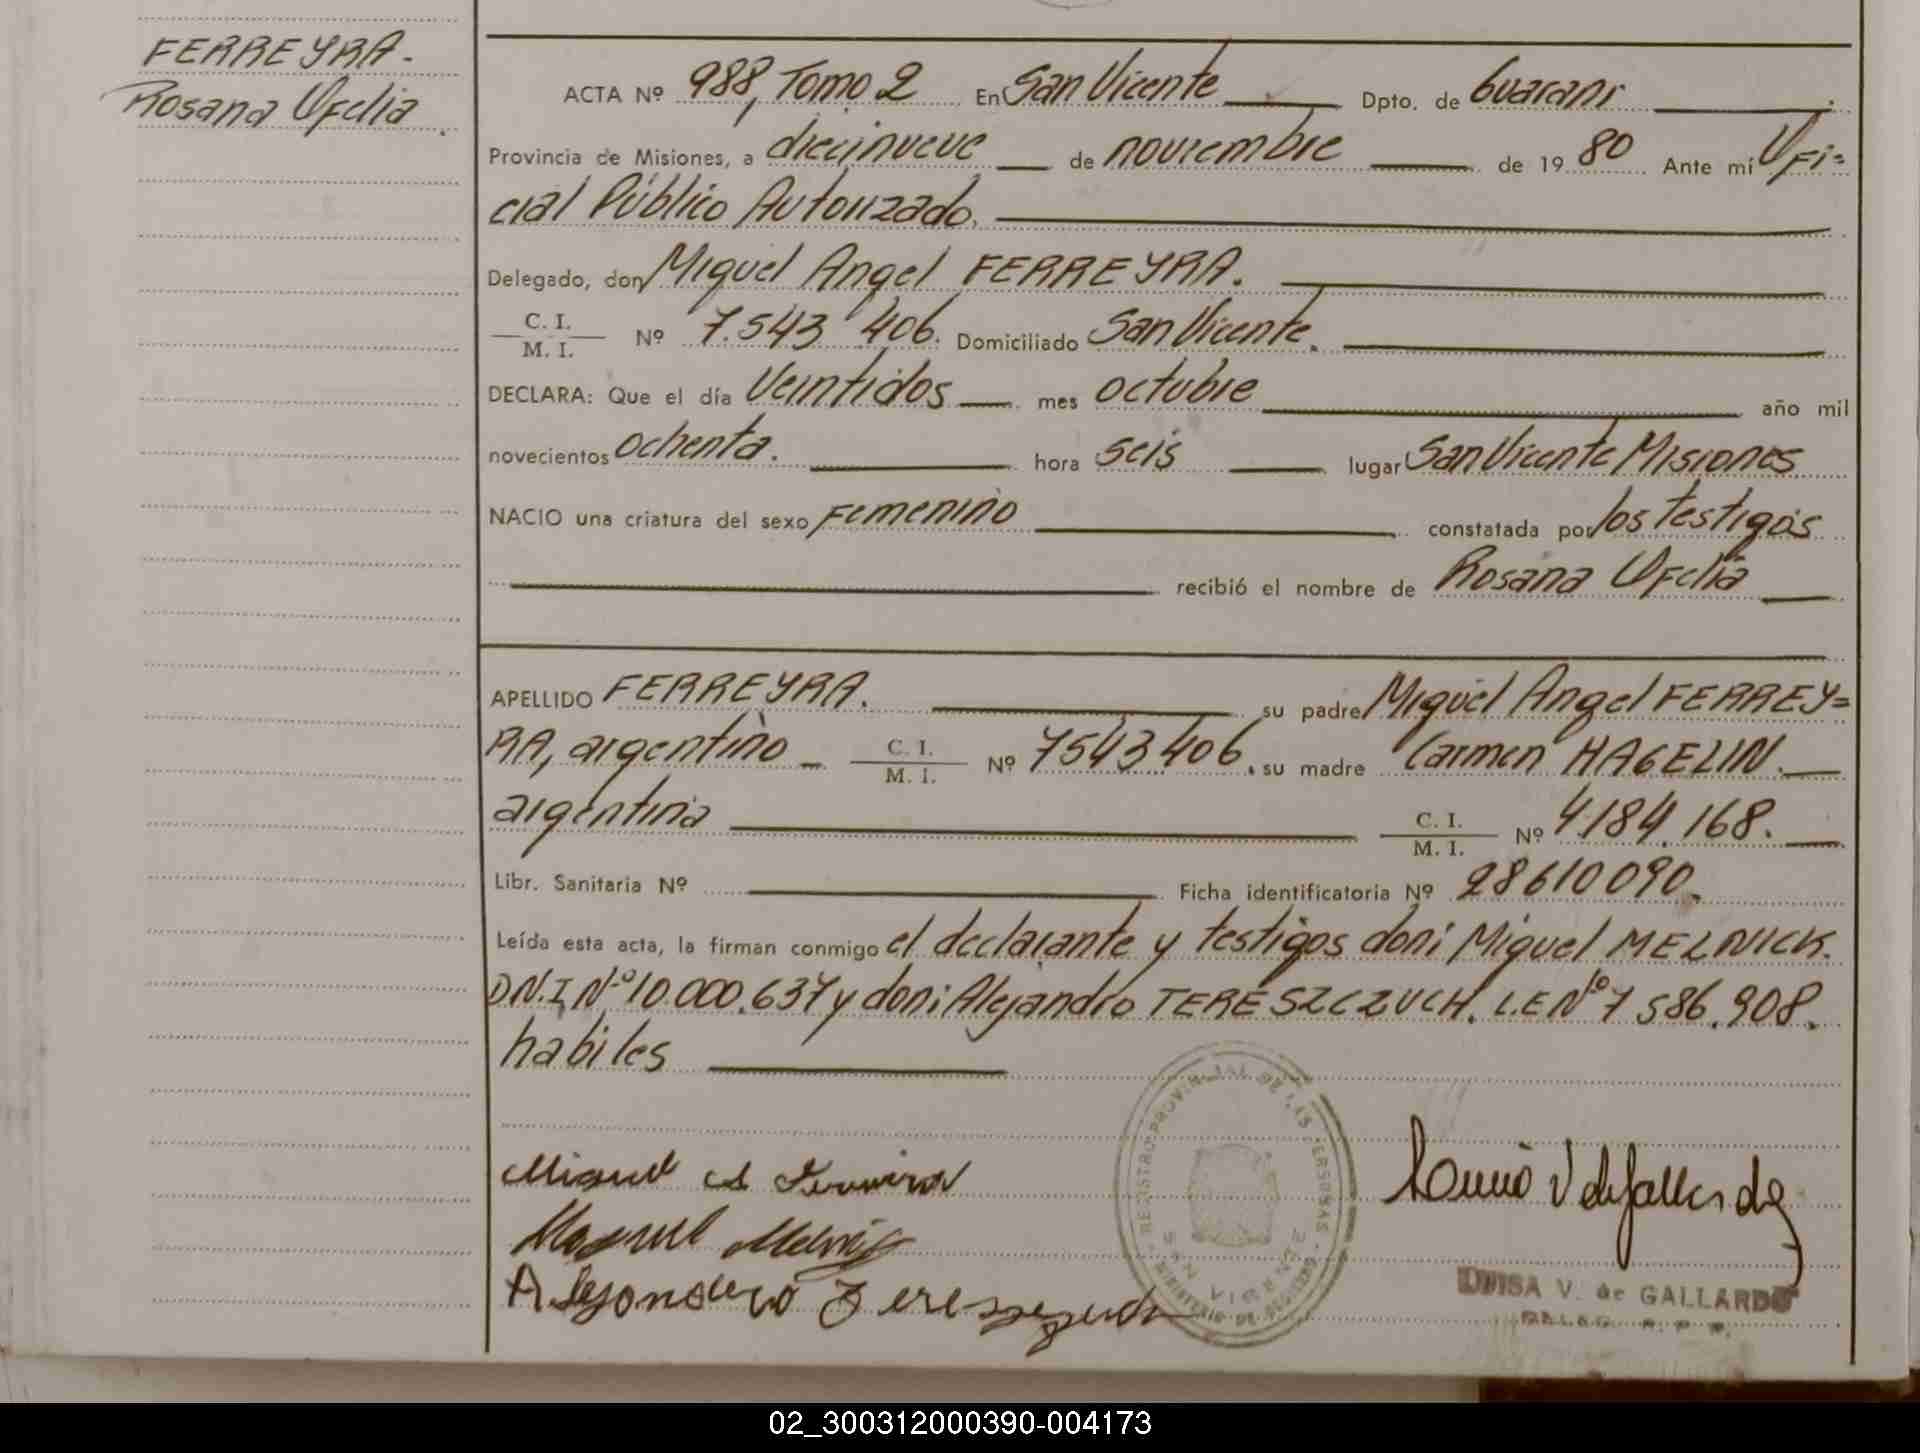 FERREYRA.
Rosana Ofelia
ACTA Nº 988, Tomo 2 En San Vicente Dpto. de Guarani
Provincia de Misiones, a diecinueve de noviembre de 1980 Ante mí Ofi=
cial Público Autorizado.
Delegado, don Miguel Angel FERREYRA.
C. I.
M. I. Nº 7.543 406. Domiciliado San Vicente.
DECLARA: Que el día Veintidos mes octubre año mil
novecientos ochenta. hora seis lugar San Vicente Misiones
NACIO una criatura del sexo Femenino constatada por los testigos
recibió el nombre de Rosana Ofelia
APELLIDO FERREYRA. su padre Miguel Angel FERREY=
RA, argentino C. I.
M. I. Nº 7543 406. su madre Carmen HAGELIN.
argentina C. I.
M. I. Nº 4.184.168.
Libr. Sanitaria Nº Ficha identificatoria Nº 28610090.
Leída esta acta, la firman conmigo el declarante y testigos don: Miguel MELNICK.
D.N.I. Nº 10.000.637 y don: Alejandro TERESZCZUCH. L.E Nº 7 586.908.
habiles
Miguel A
Miguel
REGISTRO PROVINCIAL DE LAS PERSONAS
SAN VICENTE
MINISTERIO DE GOBIERNO
LUISA V. de GALLARDO
DELEG. R. P. P.
02_300312000390-004173